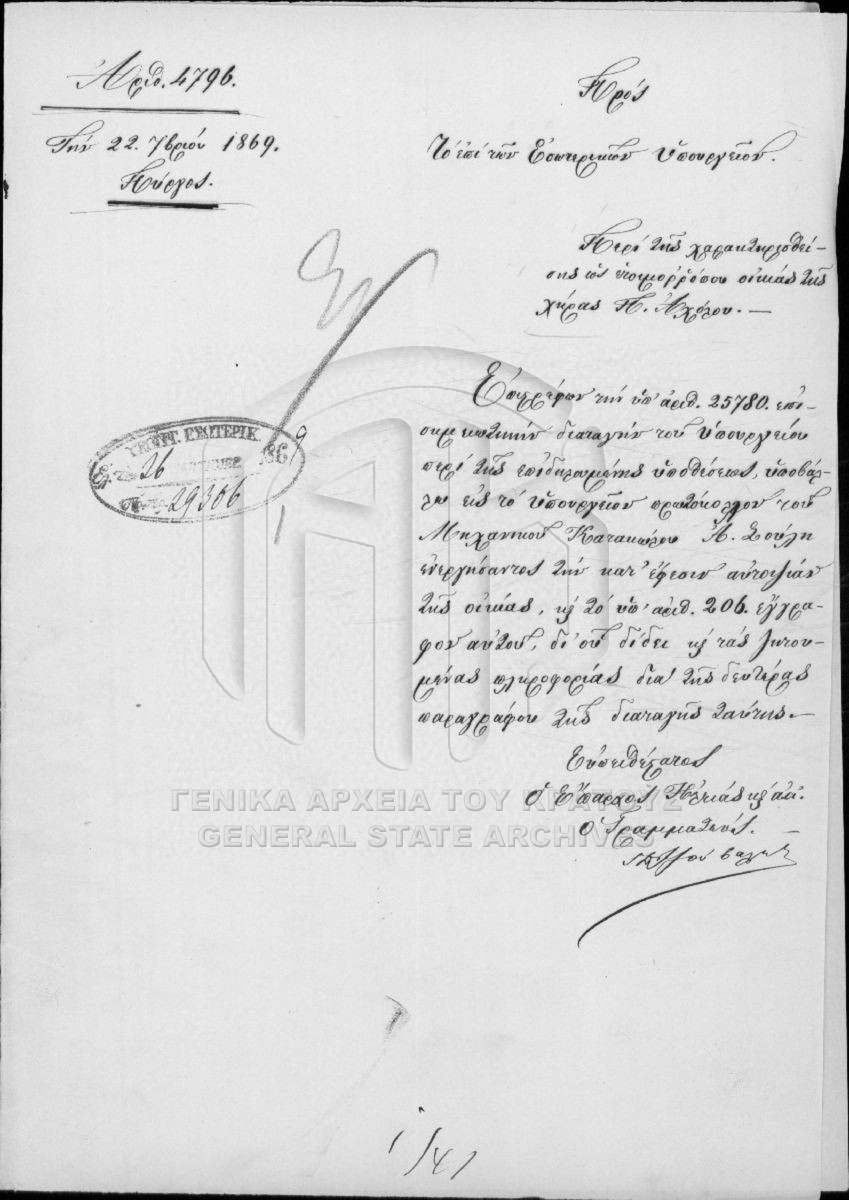 Ἀριθ. 4796.
Τὴν 22. 7βρίου 1869.
Πύργος.
Πρὸς
Τὸ ἐπὶ τῶν Ἐσωτερικῶν Ὑπουργεῖον.
Περὶ τῆς χαρακτηρισθεί-
σης ὡς ἑτοιμοῤῥόπου οἰκίας τῆς
χήρας Π. Ἀχόλου.—
ΥΠΟΥΡΓ. ΕΣΩΤΕΡΙΚ.
26
29306
Ἐπιστρέφων τὴν ὑπ' ἀριθ. 25780. ἐπι-
σημειωτικὴν διαταγὴν τοῦ Ὑπουργείου
περὶ τῆς ἐπιδηλουμένης ὑποθέσεως, ὑποβάλ-
λω εἰς τὸ Ὑπουργεῖον πρωτόκολλον τοῦ
Μηχανικοῦ Κατακώλου Ἀ. Σούλη
ἐνεργήσαντος τὴν κατ' ἔφεσιν αὐτοψίαν
τῆς οἰκίας, κ τὸ ὑπ' ἀριθ. 206. ἔγγρα-
φον αὐτοῦ, δι' οὗ δίδει κ τὰς ζητου-
μένας πληροφορίας διὰ τῆς δευτέρας
παραγράφου τῆς διαταγῆς ταύτης.—
Εὐπειθέστατος
Ὁ Ἔπαρχος Ἠλείας κ ἀ.ἀ.
Ὁ Γραμματεύς.
ΓΕΝΙΚΑ ΑΡΧΕΙΑ ΤΟΥ ΚΡΑΤΟΥΣ
GENERAL STATE ARCHIVES
1/41